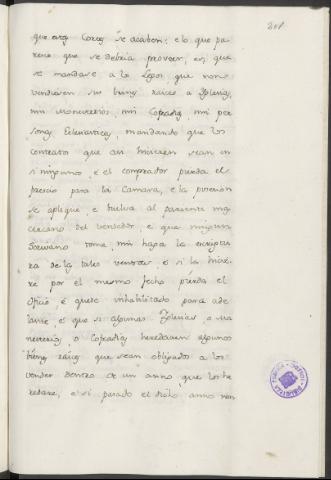 que estas Cortes se acaben; e lo que pa
rece que se debria proveer, es que
se mandase a los Legos que non
vendiesen sus bienes raices a Iglesias,
nin Monesterios, nin Cofradias, nin per
sonas Eclesiasticas, mandando que los
contratos que asi hicieren sean en
si ningunos e el comprador pierda el
precio para la Camara, e la posesion
se aplique, e vuelva al pariente mas
cercano del vendedor, e que ningun
Escrivano tome, nin haga la escriptu
ra de las tales ventas, e si la hicie
re por el mesmo fecho pierda el
oficio, e quede inhabilitado para ade
lante, e que si algunas Iglesias, o Mo
nesterios, o Cofradias heredaren algunos
bienes raices que sean obligados a los
vender dentro de un año, que los he
redare, e si pasado el dicho anno non